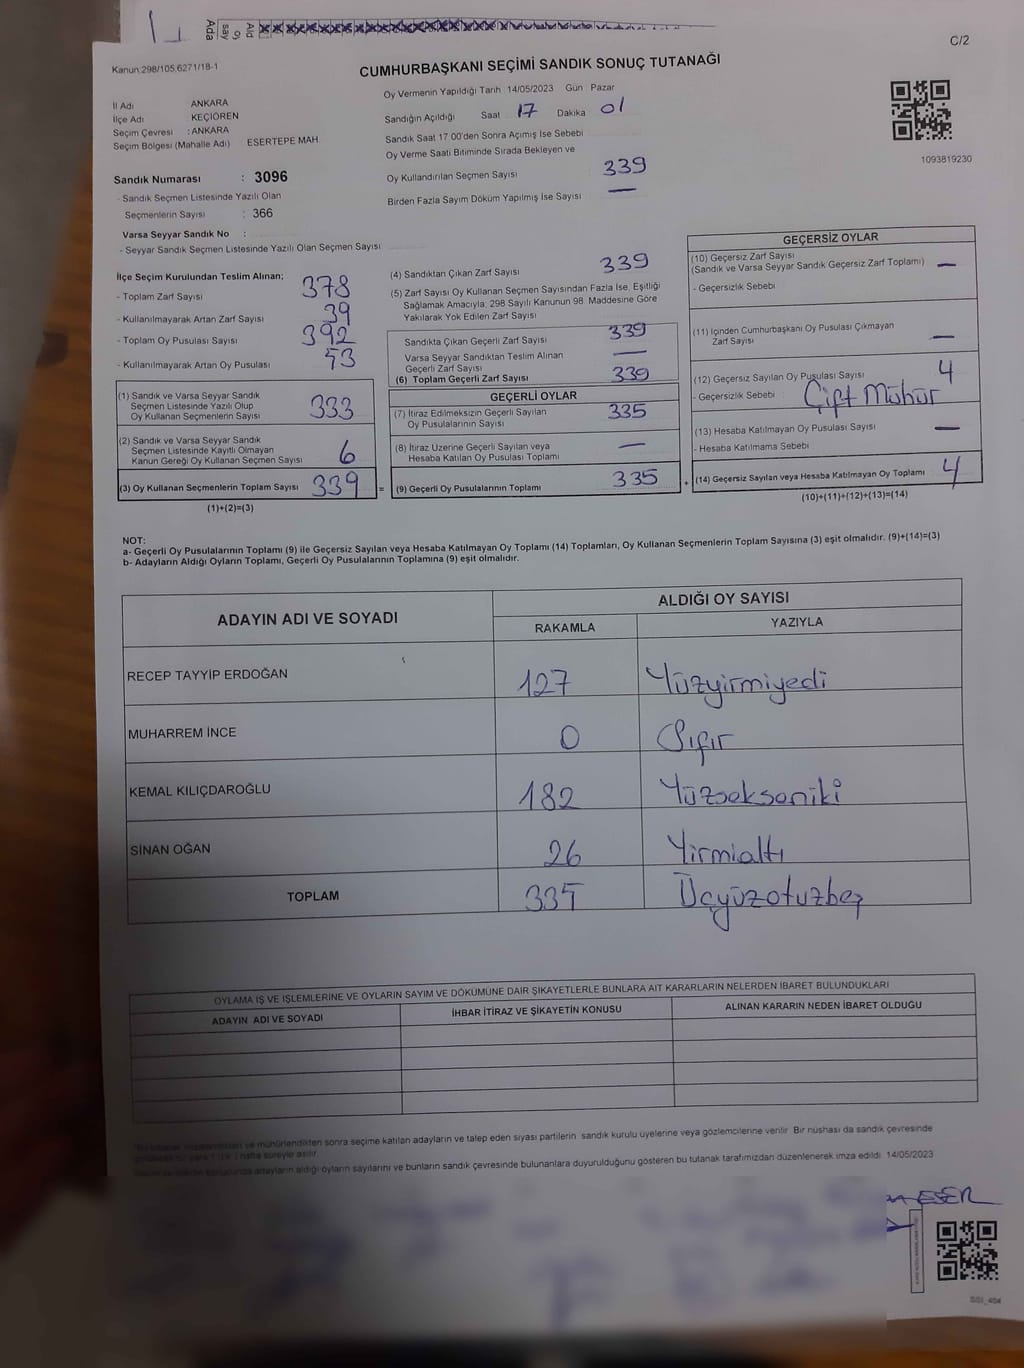 Ada
say
Oy
Ald
C/2
Kanun:298/105,6271/18-1
CUMHURBAŞKANI SEÇİMİ SANDIK SONUÇ TUTANAĞI
İl Adı ANKARA
İlçe Adı KEÇİÖREN
Seçim Çevresi : ANKARA
Seçim Bölgesi (Mahalle Adı) ESERTEPE MAH.
Oy Vermenin Yapıldığı Tarih 14/05/2023 Gün Pazar
Sandığın Açıldığı Saat 17 Dakika 01
Sandık Saat 17 00'den Sonra Açılmış İse Sebebi
Oy Verme Saati Bitiminde Sırada Bekleyen ve
Oy Kullandırılan Seçmen Sayısı 339
Birden Fazla Sayım Döküm Yapılmış İse Sayısı —
1093819230
Sandık Numarası : 3096
- Sandık Seçmen Listesinde Yazılı Olan
Seçmenlerin Sayısı : 366
Varsa Seyyar Sandık No :
- Seyyar Sandık Seçmen Listesinde Yazılı Olan Seçmen Sayısı
İlçe Seçim Kurulundan Teslim Alınan;
- Toplam Zarf Sayısı 378
- Kullanılmayarak Artan Zarf Sayısı 39
- Toplam Oy Pusulası Sayısı 392
- Kullanılmayarak Artan Oy Pusulası 53
(1) Sandık ve Varsa Seyyar Sandık
Seçmen Listesinde Yazılı Olup
Oy Kullanan Seçmenlerin Sayısı 333
(2) Sandık ve Varsa Seyyar Sandık
Seçmen Listesinde Kayıtlı Olmayan
Kanun Gereği Oy Kullanan Seçmen Sayısı 6
(3) Oy Kullanan Seçmenlerin Toplam Sayısı 339 =
(1)+(2)=(3)
(4) Sandıktan Çıkan Zarf Sayısı 339
(5) Zarf Sayısı Oy Kullanan Seçmen Sayısından Fazla İse, Eşitliği
Sağlamak Amacıyla; 298 Sayılı Kanunun 98. Maddesine Göre
Yakılarak Yok Edilen Zarf Sayısı
Sandıkta Çıkan Geçerli Zarf Sayısı 339
Varsa Seyyar Sandıktan Teslim Alınan
Geçerli Zarf Sayısı —
(6) Toplam Geçerli Zarf Sayısı 339
GEÇERLİ OYLAR
(7) İtiraz Edilmeksizin Geçerli Sayılan
Oy Pusulalarının Sayısı 335
(8) İtiraz Üzerine Geçerli Sayılan veya
Hesaba Katılan Oy Pusulası Toplamı —
(9) Geçerli Oy Pusulalarının Toplamı 335 +
GEÇERSİZ OYLAR
(10) Geçersiz Zarf Sayısı
(Sandık ve Varsa Seyyar Sandık Geçersiz Zarf Toplamı) —
- Geçersizlik Sebebi
(11) İçinden Cumhurbaşkanı Oy Pusulası Çıkmayan
Zarf Sayısı —
(12) Geçersiz Sayılan Oy Pusulası Sayısı 4
- Geçersizlik Sebebi Çift Mühür
(13) Hesaba Katılmayan Oy Pusulası Sayısı —
- Hesaba Katılmama Sebebi
(14) Geçersiz Sayılan veya Hesaba Katılmayan Oy Toplamı 4
(10)+(11)+(12)+(13)=(14)
NOT:
a- Geçerli Oy Pusulalarının Toplamı (9) ile Geçersiz Sayılan veya Hesaba Katılmayan Oy Toplamı (14) Toplamları, Oy Kullanan Seçmenlerin Toplam Sayısına (3) eşit olmalıdır. (9)+(14)=(3)
b- Adayların Aldığı Oyların Toplamı, Geçerli Oy Pusulalarının Toplamına (9) eşit olmalıdır.
ADAYIN ADI VE SOYADI
ALDIĞI OY SAYISI
RAKAMLA YAZIYLA
RECEP TAYYİP ERDOĞAN 127 Yüzyirmiyedi
MUHARREM İNCE 0 Sıfır
KEMAL KILIÇDAROĞLU 182 Yüzsekseniki
SİNAN OĞAN 26 Yirmialtı
TOPLAM 335 Üçyüzotuzbeş
OYLAMA İŞ VE İŞLEMLERİNE VE OYLARIN SAYIM VE DÖKÜMÜNE DAİR ŞİKAYETLERLE BUNLARA AİT KARARLARIN NELERDEN İBARET BULUNDUKLARI
ADAYIN ADI VE SOYADI İHBAR İTİRAZ VE ŞİKAYETİN KONUSU ALINAN KARARIN NEDEN İBARET OLDUĞU
ve mühürlendikten sonra seçime katılan adayların ve talep eden siyasi partilerin sandık kurulu üyelerine veya gözlemcilerine verilir. Bir nüshası da sandık çevresinde
hafta süreyle asılır.
adayların aldığı oyların sayılarını ve bunların sandık çevresinde bulunanlara duyurulduğunu gösteren bu tutanak tarafımızdan düzenlenerek imza edildi. 14/05/2023
ESER